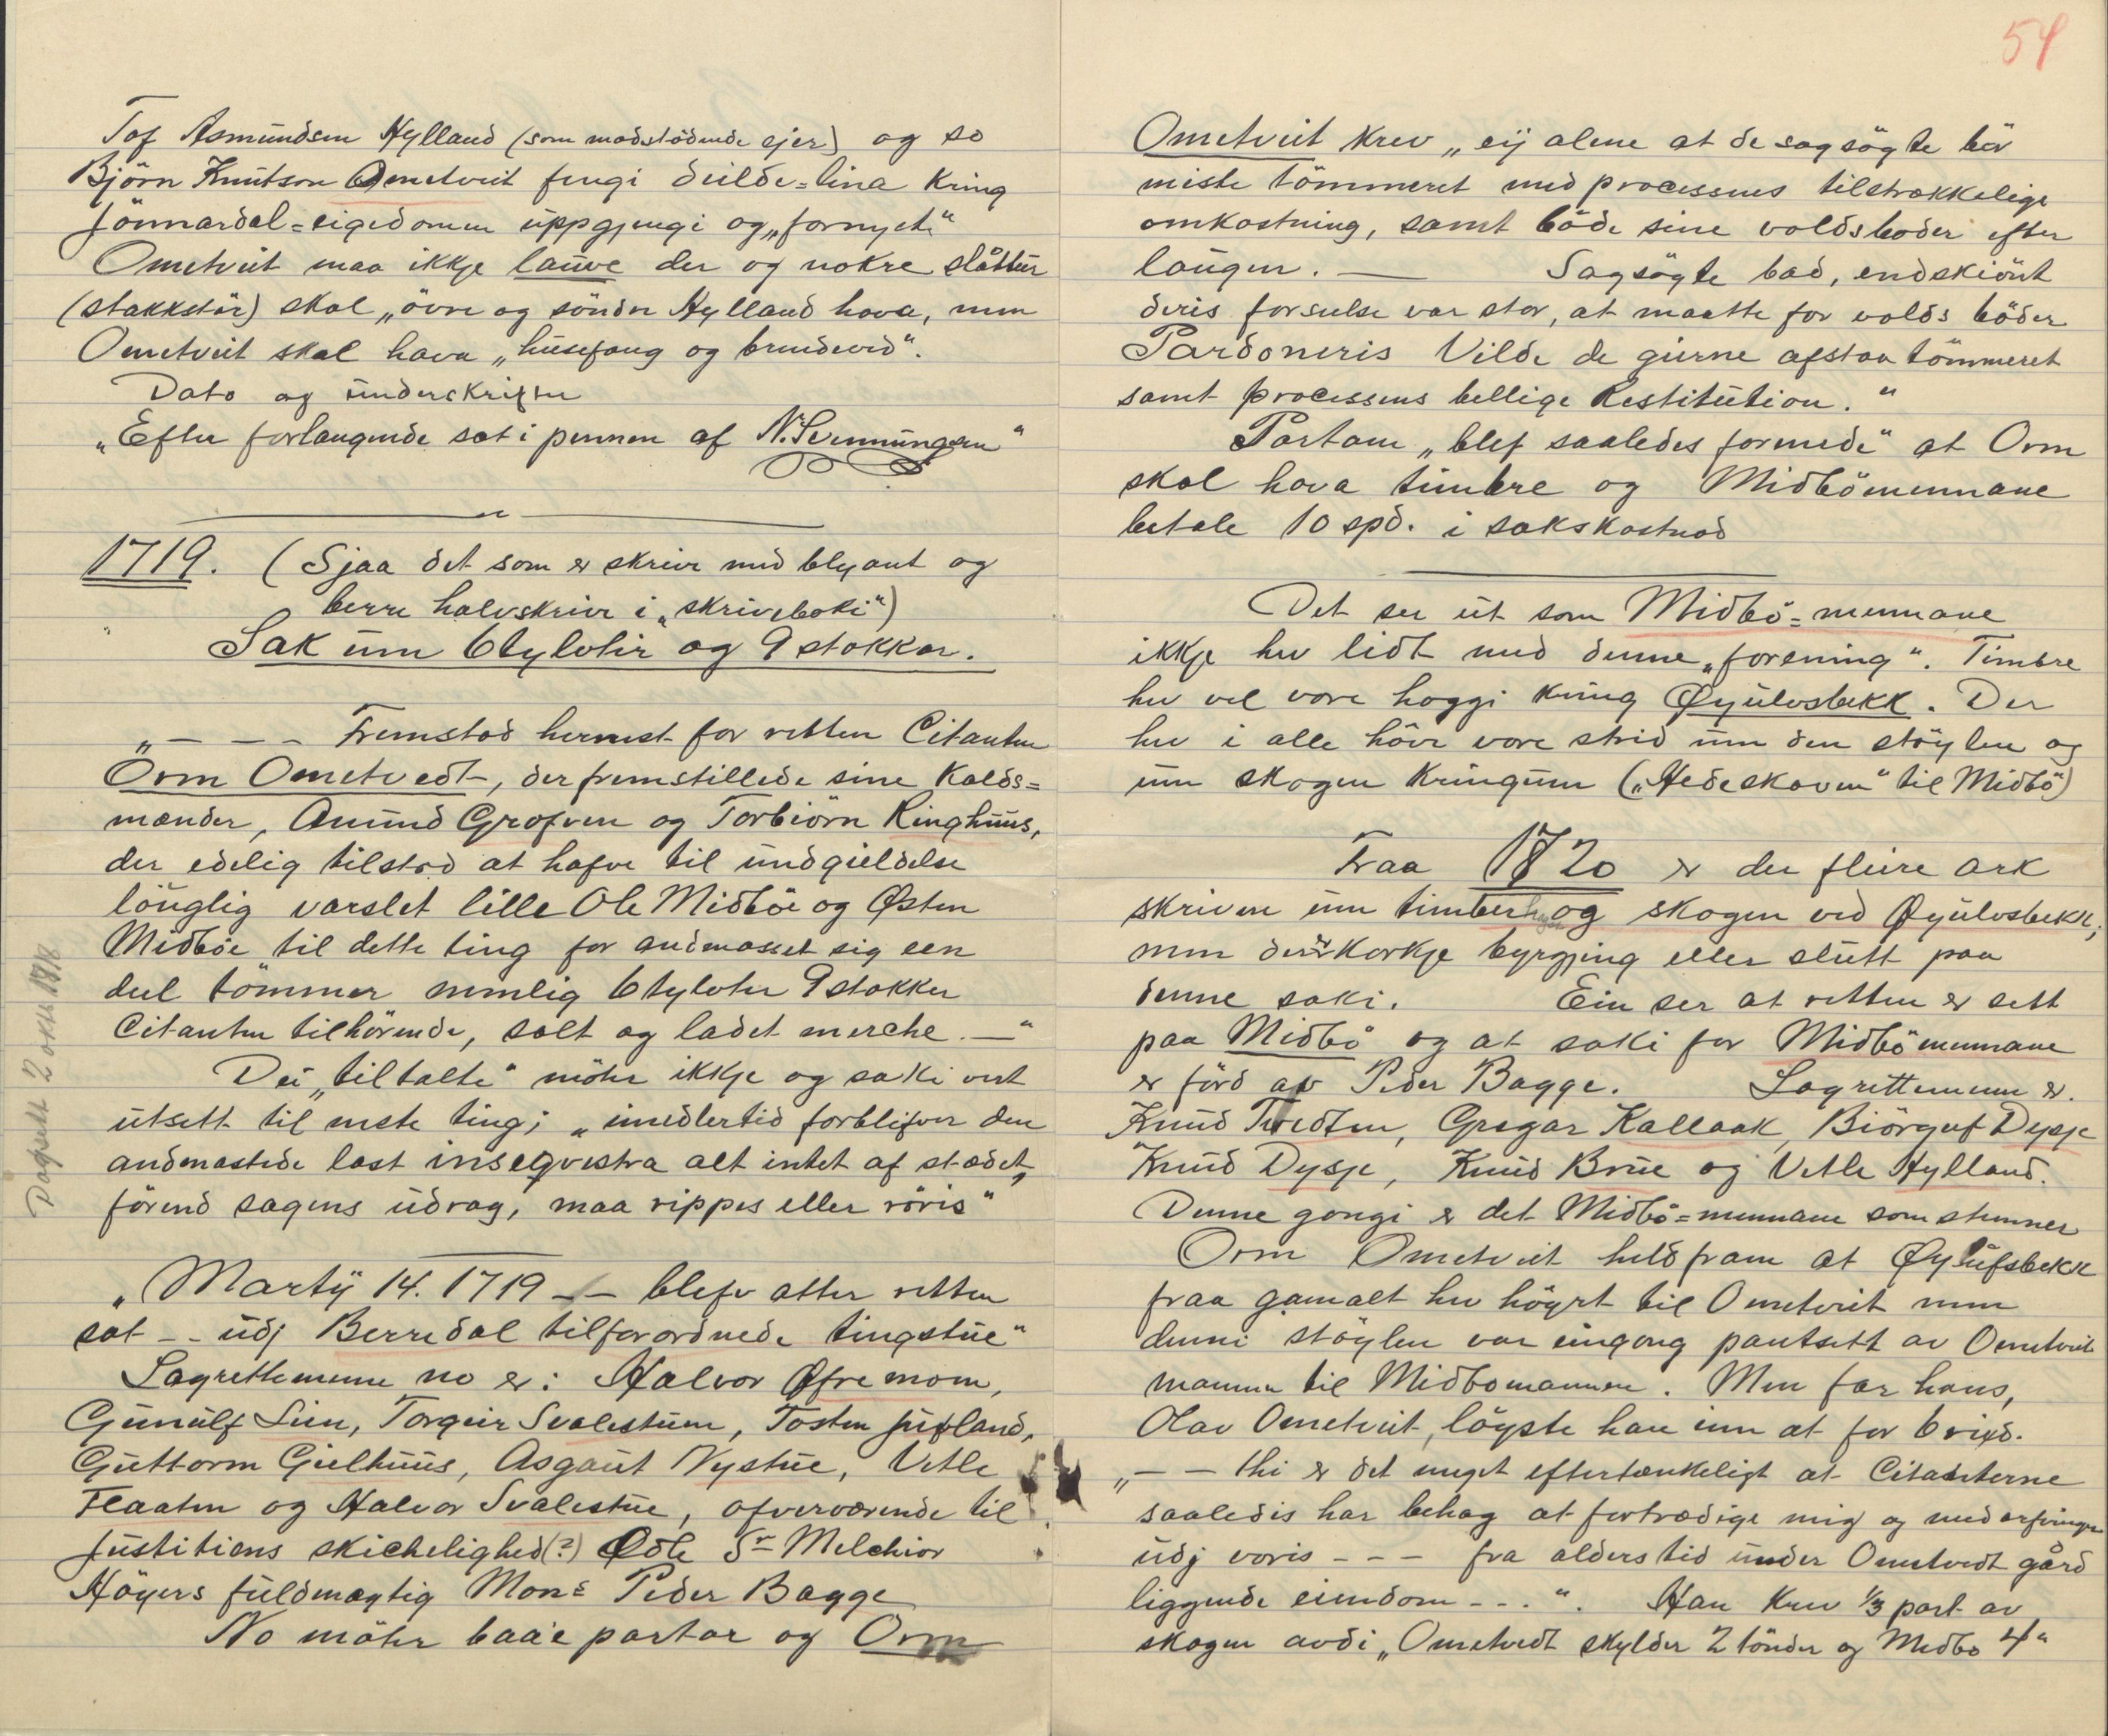 Tof Asmundsen Hylland (som modstödende ejer) og so
Björn Knutson Ometveit fengi deilde=lina kring
Jönnardal=eigedomen uppgjengi og „fornyet“
Ometveit maa ikkje lauve der og nokre slåttur
(stakkstår) skal „övre og söndre Hylland hava, men
Ometveit skal hava „husefang og brendeved“.
Dato og underskrifter
„Efter forlangende sat i pennen af N. Svennungsen“
1719. (Sjaa det som er skrive med blyant og
berre halvskrive i „skriveboki“)
Sak um 6 tylvtir og 9 stokkar.
„— — — Fremstod hernest for retten Citanten
Orm Ometvedt, der fremstillede sine Kalds=
mænder, Anund Grofven og Torbiörn Ringhuus,
der edelig tilstod at hafve til undgieldelse
löuglig varslet lille Ole Midböe og Østen
Midböe til dette ting for andmasset sig een
deel tömmer nemlig 6 tylvter 9 stokker
Citanten tilhörende, solt og ladet merche.—“
Dei „tiltalte“ möter ikkje og saki vert
utsett til neste ting; „imedlertid forblifver den
andmastede last inseqvestra alt intet af stædet,
förend sagens udrag, maa rippes eller röris“
„Martÿ 14. 1719 — — blefv atter retten
sat - - udj Berredal tilforordnede tingstue“
Lagrettemenne no er: Halvor Øfremom,
Gunulf Lien, Torgeir Svalestuen, Tosten Jufland,
Guttorm Gielhuus, Asgaut Nystue, Vetle
Flaaten og Halvor Svalestue, ofverværende til
Justitiens skichelighed(?) Edle Sr Melchior
Höyers fuldmægtig Mons Peder Bagge
No möter baa'e partar og Orm
Dagsett 2 okt 1718
54
Ometveit krev „eÿ alene at de sagsögte bör
miste tömmeret med processens tilstrækkelige
omkostning, samt böde sine voldsboder efter
laugen. — Sagsögte bad, endskiönt
deris forseelse var stor, at maatte for volds böder
Pardoneris Vilde de gierne afstaa tömmeret
samt processens bellige Restitution.“
Partane „blef saaledes forenede“ at Orm
skal hava timbre og Midbömennane
betale 10 spd. i sakskostnad
Det ser ut som Midbö=mennane
ikkje hev lidt med denne „forening“. Timbre
hev vel vore hoggi kring Øyulvsbekk. Der
hev i alle höve vore strid um den stöylen og
um skogen kringum („Hedeskoven“ til Midbö)
Fraa 1720 er der fleire ark
skrivne um timber og skogen ved Øyulvsbekk;
men der er korkje byrjing eller slutt paa
denne saki. Ein ser at retten er sett
paa Midbö og at saki for Midbömennane
er förd av Peder Bagge. Lagrettemenn er.
Knud Tvedten, Gregar Kallaak, Biörguf Dysje
Knud Dysje, Knud Brue og Vetle Hylland.
Denne gongi er det Midbö=mennane som stemner
Orm Ometveit held fram at Øyulfsbekk
fraa gamalt hev höyrt til Ometveit men
denni stöylen var eingong pantsett av Ometveit
mannen til Midbomannen. Men far hans,
Olav Ometveit, löyste han inn at for 6 rixd.
„— — thi er det meget eftertænkeligt at Citanterne
saaledis har behag at fortrædige mig og medarfvinger
udj voris - - - fra alders tid under Ometvedt gård
liggende eiendom - - -“. Han krev 1/3 part av
skogen avdi „Ometvedt skylder 2 tönder og Medbö 4“